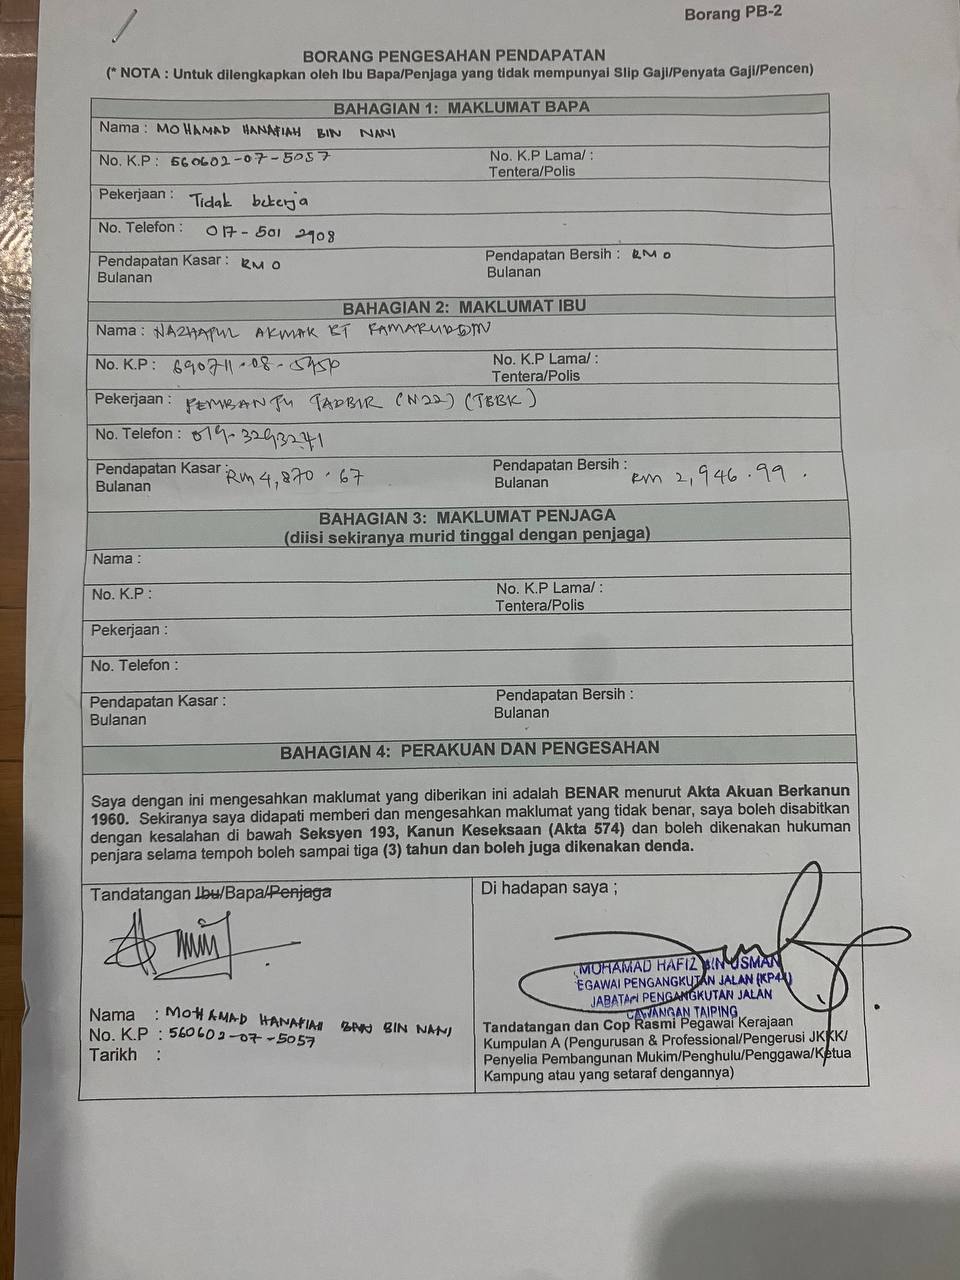 Borang PB-2
BORANG PENGESAHAN PENDAPATAN
(* NOTA : Untuk dilengkapkan oleh Ibu Bapa/Penjaga yang tidak mempunyai Slip Gaji/Penyata Gaji/Pencen)
BAHAGIAN 1: MAKLUMAT BAPA
Nama : MOHAMAD HANAFIAH BIN NANI
No. K.P : 560602-07-5057 No. K.P Lama/ :
Tentera/Polis
Pekerjaan : Tidak bekerja
No. Telefon : 017-501 2908
Pendapatan Kasar : RM 0 Pendapatan Bersih : RM 0
Bulanan Bulanan
BAHAGIAN 2: MAKLUMAT IBU
Nama : AKMAR BT
No. K.P : 690711-08- No. K.P Lama/ :
Tentera/Polis
Pekerjaan : PEMBANTU TADBIR (N22) (TBBK)
No. Telefon : 019-3293241
Pendapatan Kasar : Rm 4,870.67 Pendapatan Bersih : RM 2,946.99.
Bulanan Bulanan
BAHAGIAN 3: MAKLUMAT PENJAGA
(diisi sekiranya murid tinggal dengan penjaga)
Nama :
No. K.P : No. K.P Lama/ :
Tentera/Polis
Pekerjaan :
No. Telefon :
Pendapatan Kasar : Pendapatan Bersih :
Bulanan Bulanan
BAHAGIAN 4: PERAKUAN DAN PENGESAHAN
Saya dengan ini mengesahkan maklumat yang diberikan ini adalah BENAR menurut Akta Akuan Berkanun
1960. Sekiranya saya didapati memberi dan mengesahkan maklumat yang tidak benar, saya boleh disabitkan
dengan kesalahan di bawah Seksyen 193, Kanun Keseksaan (Akta 574) dan boleh dikenakan hukuman
penjara selama tempoh boleh sampai tiga (3) tahun dan boleh juga dikenakan denda.
Tandatangan Ibu/Bapa/Penjaga
Nama : MOHAMAD HANAFIAH BIN NANI
No. K.P : 560602-07-5057
Tarikh :
Di hadapan saya ;
MOHAMAD HAFIZ BIN USMAN
EGAWAI PENGANGKUTAN JALAN (KP41)
JABATAN PENGANGKUTAN JALAN
CAWANGAN TAIPING
Tandatangan dan Cop Rasmi Pegawai Kerajaan
Kumpulan A (Pengurusan & Professional/Pengerusi JKKK/
Penyelia Pembangunan Mukim/Penghulu/Penggawa/Ketua
Kampung atau yang setaraf dengannya)